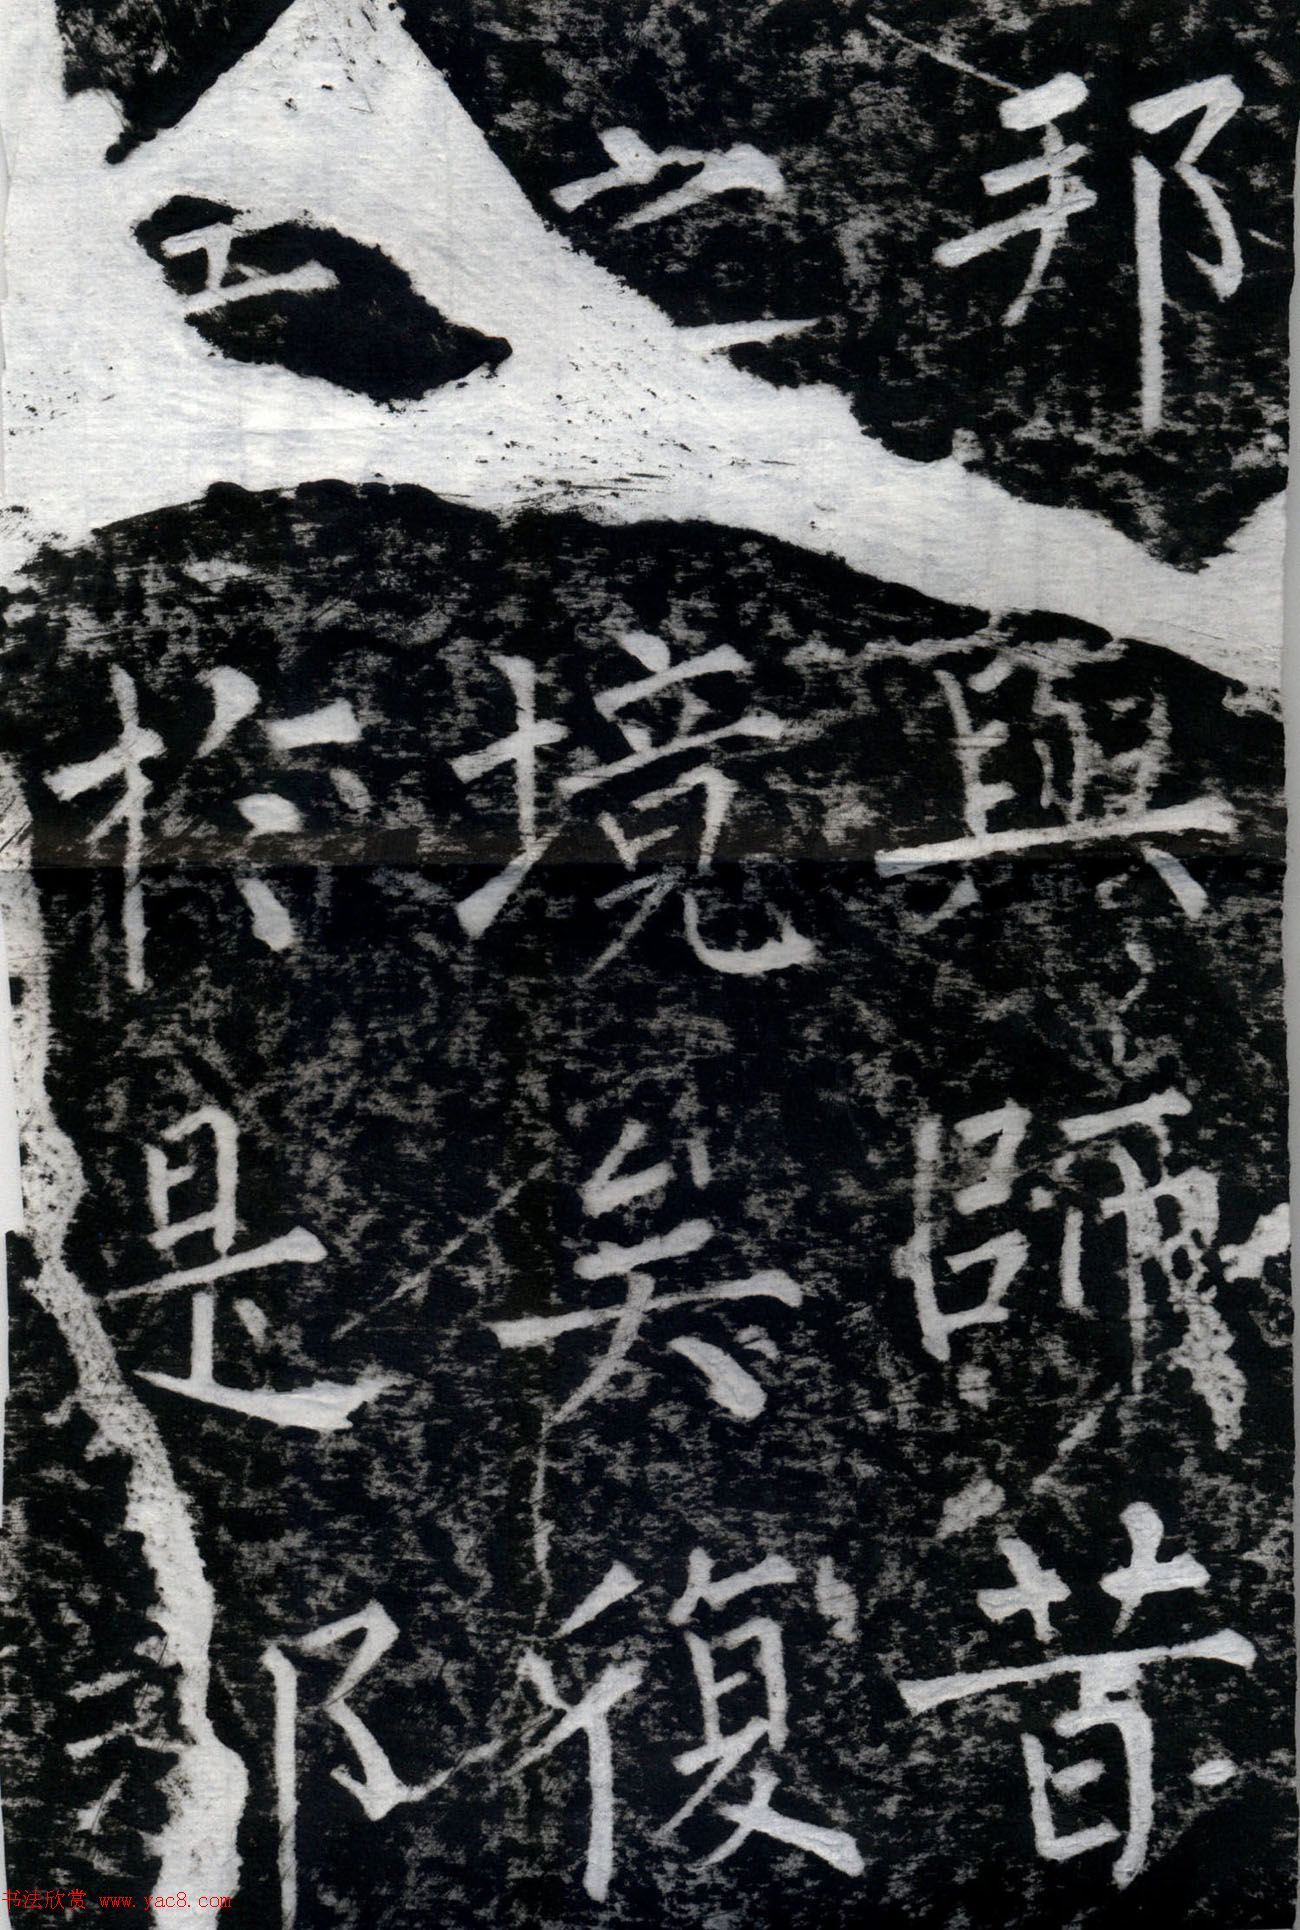 邦興師昔
境矣復
於是
书法欣赏 www.yac8.com